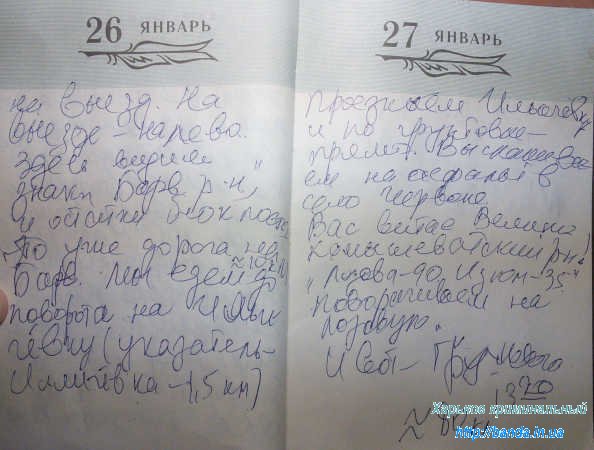 26 ЯНВАРЬ
на выезд. На
выезде - налево.
Здесь видим
знаки "Барв. р-н",
и остатки блок поста
То уже дорога на
Барв. Мы едем до
≈ 10 км
поворота на Ильи
чёвку (указатель -
Ильичёвка - 1,5 км)
27 ЯНВАРЬ
Проезжаем Ильичёвку
и по грунтовке -
прямо. Выскакива
ем на асфальт в
село Червоне
Вас витає Велика
Комышеватский р-н.
"Лозова - 90, Изюм - 35"
поворачиваем на
Лозовую.
И вот -
1320
Харьков криминальный
http://banda.in.ua